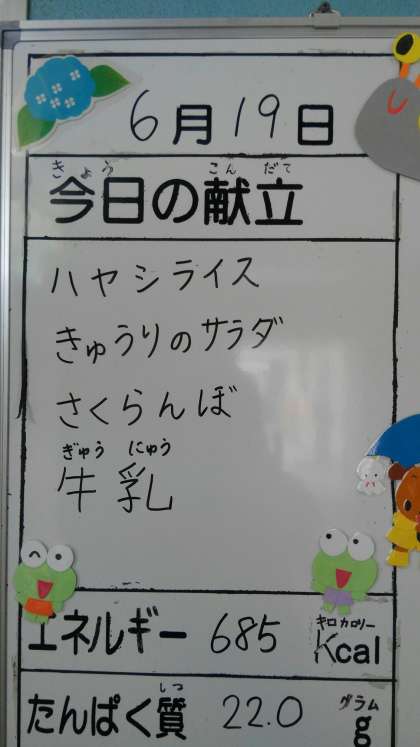 6月19日
きょう こんだて
今日の献立
ハヤシライス
きゅうりのサラダ
さくらんぼ
ぎゅう にゅう
牛乳
キロカロリー
エネルギー 685 Kcal
しつ グラム
たんぱく質 22.0 g